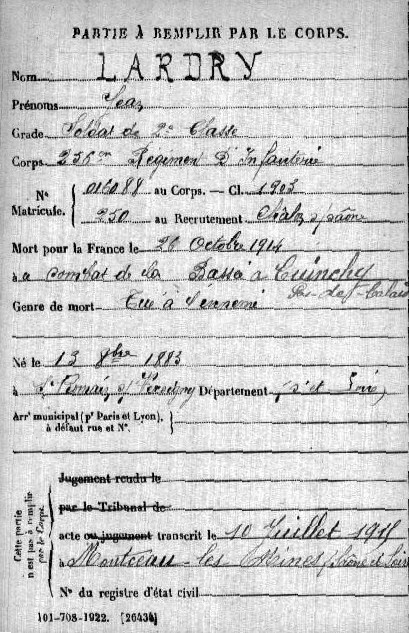 PARTIE À REMPLIR PAR LE CORPS.
Nom LARDRY
Prénoms Jean
Grade Soldat de 2e Classe
Corps 256me Régiment D'Infanterie
N° Matricule. { 016088 au Corps. — Cl. 1903
250 au Recrutement Chalon s/Saône
Mort pour la France le 20 Octobre 1914
à a combat de la Bassée à Cuinchy
Pas-de-Calais
Genre de mort Tué à l'ennemi
Né le 13 8bre 1883
à St s/ Département s et Loire
Arrt municipal (pr Paris et Lyon),
à défaut rue et N°.
Cette partie n'est pas à remplir par le Corps.
Jugement rendu le
par le Tribunal de
acte ou jugement transcrit le 10 Juillet 1915
à Montceau-les Mines (Saône et Loire
N° du registre d'état civil
101-708-1922. [26434]